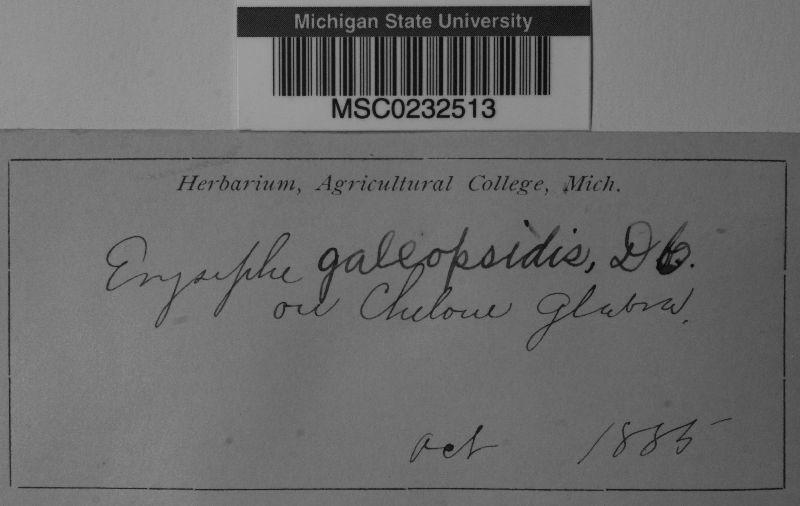 Michigan State University
MSC0232513
Herbarium, Agricultural College, Mich.
Erysiphe galeopsidis, DC.
on Chelone glabra.
Oct 1885